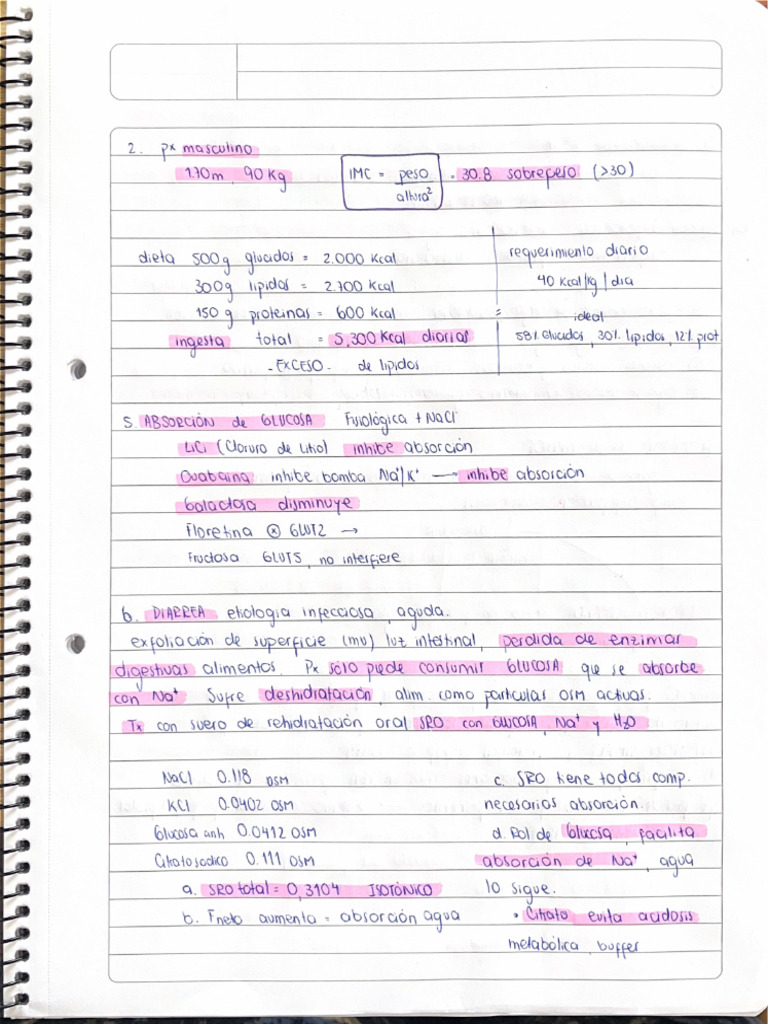 2. Px masculino
1.70m, 90 Kg
IMC = peso / altura² = 30.8 sobrepeso (>30)
dieta 500g glucidos = 2.000 Kcal
300g lipidos = 2.700 Kcal
150 g proteinas = 600 Kcal
ingesta total = 5,300 Kcal diarias
-EXCESO- de lipidos
requerimiento diario
40 Kcal/Kg/dia
= ideal
58% Glucidos, 30% lipidos, 12% prot
5. ABSORCIÓN de GLUCOSA Fisiológica + NaCl
LiCi (Cloruro de Litio) inhibe absorción
Ouabaina inhibe bomba Na⁺/K⁺ → inhibe absorción
Galactosa disminuye
Floretina ⊗ GLUT2 →
Fructosa GLUT5, no interfiere
6. DIARREA etiologia infecciosa, aguda.
exfoliación de superficie (mv) luz intestinal, perdida de enzimas
digestivas alimentos. Px sólo puede consumir GLUCOSA que se absorbe
con Na⁺ Sufre deshidratación, alim. como particulas osm activas.
Tx con suero de rehidratación oral SRO con GLUCOSA, Na⁺ y H₂O
NaCl 0.118 OSM
KCl 0.0402 OSM
Glucosa anh 0.0412 OSM
Citrato sodico 0.111 OSM
a. SRO total = 0,3104 ISOTÓNICO
b. Fneto aumenta = absorción agua
c. SRO tiene todos comp.
necesarios absorción.
d. Rol de Glucosa, facilita
absorción de Na⁺, agua
lo sigue.
• Citrato evita acidosis
metabólica, buffer